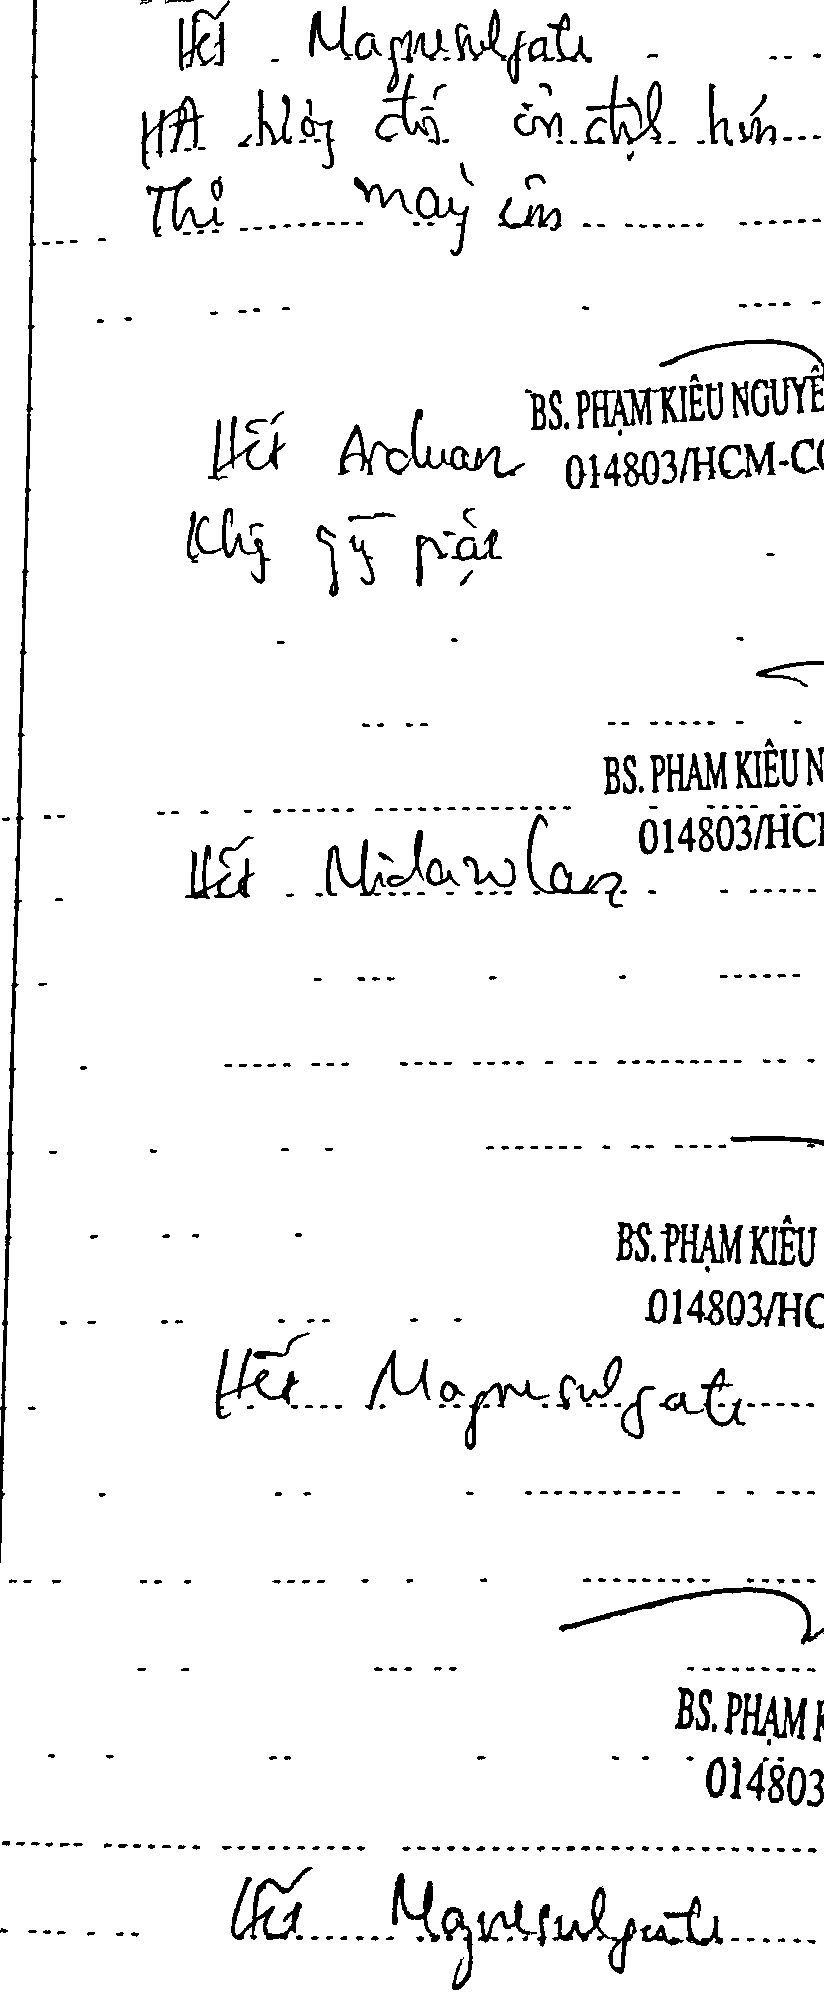 Hết Magnesulfate
HA tương đối ổn định hơn
Thở máy êm
BS. PHẠM KIỀU NGUYÊ
014803/HCM-CC
Hết Arduan
Không gồng giật
BS. PHẠM KIỀU N
014803/HC
Hết Midazolam
BS. PHẠM KIỀU
014803/HC
Hết Magnesulfate
BS. PHẠM K
014803
Hết Magnesulfate